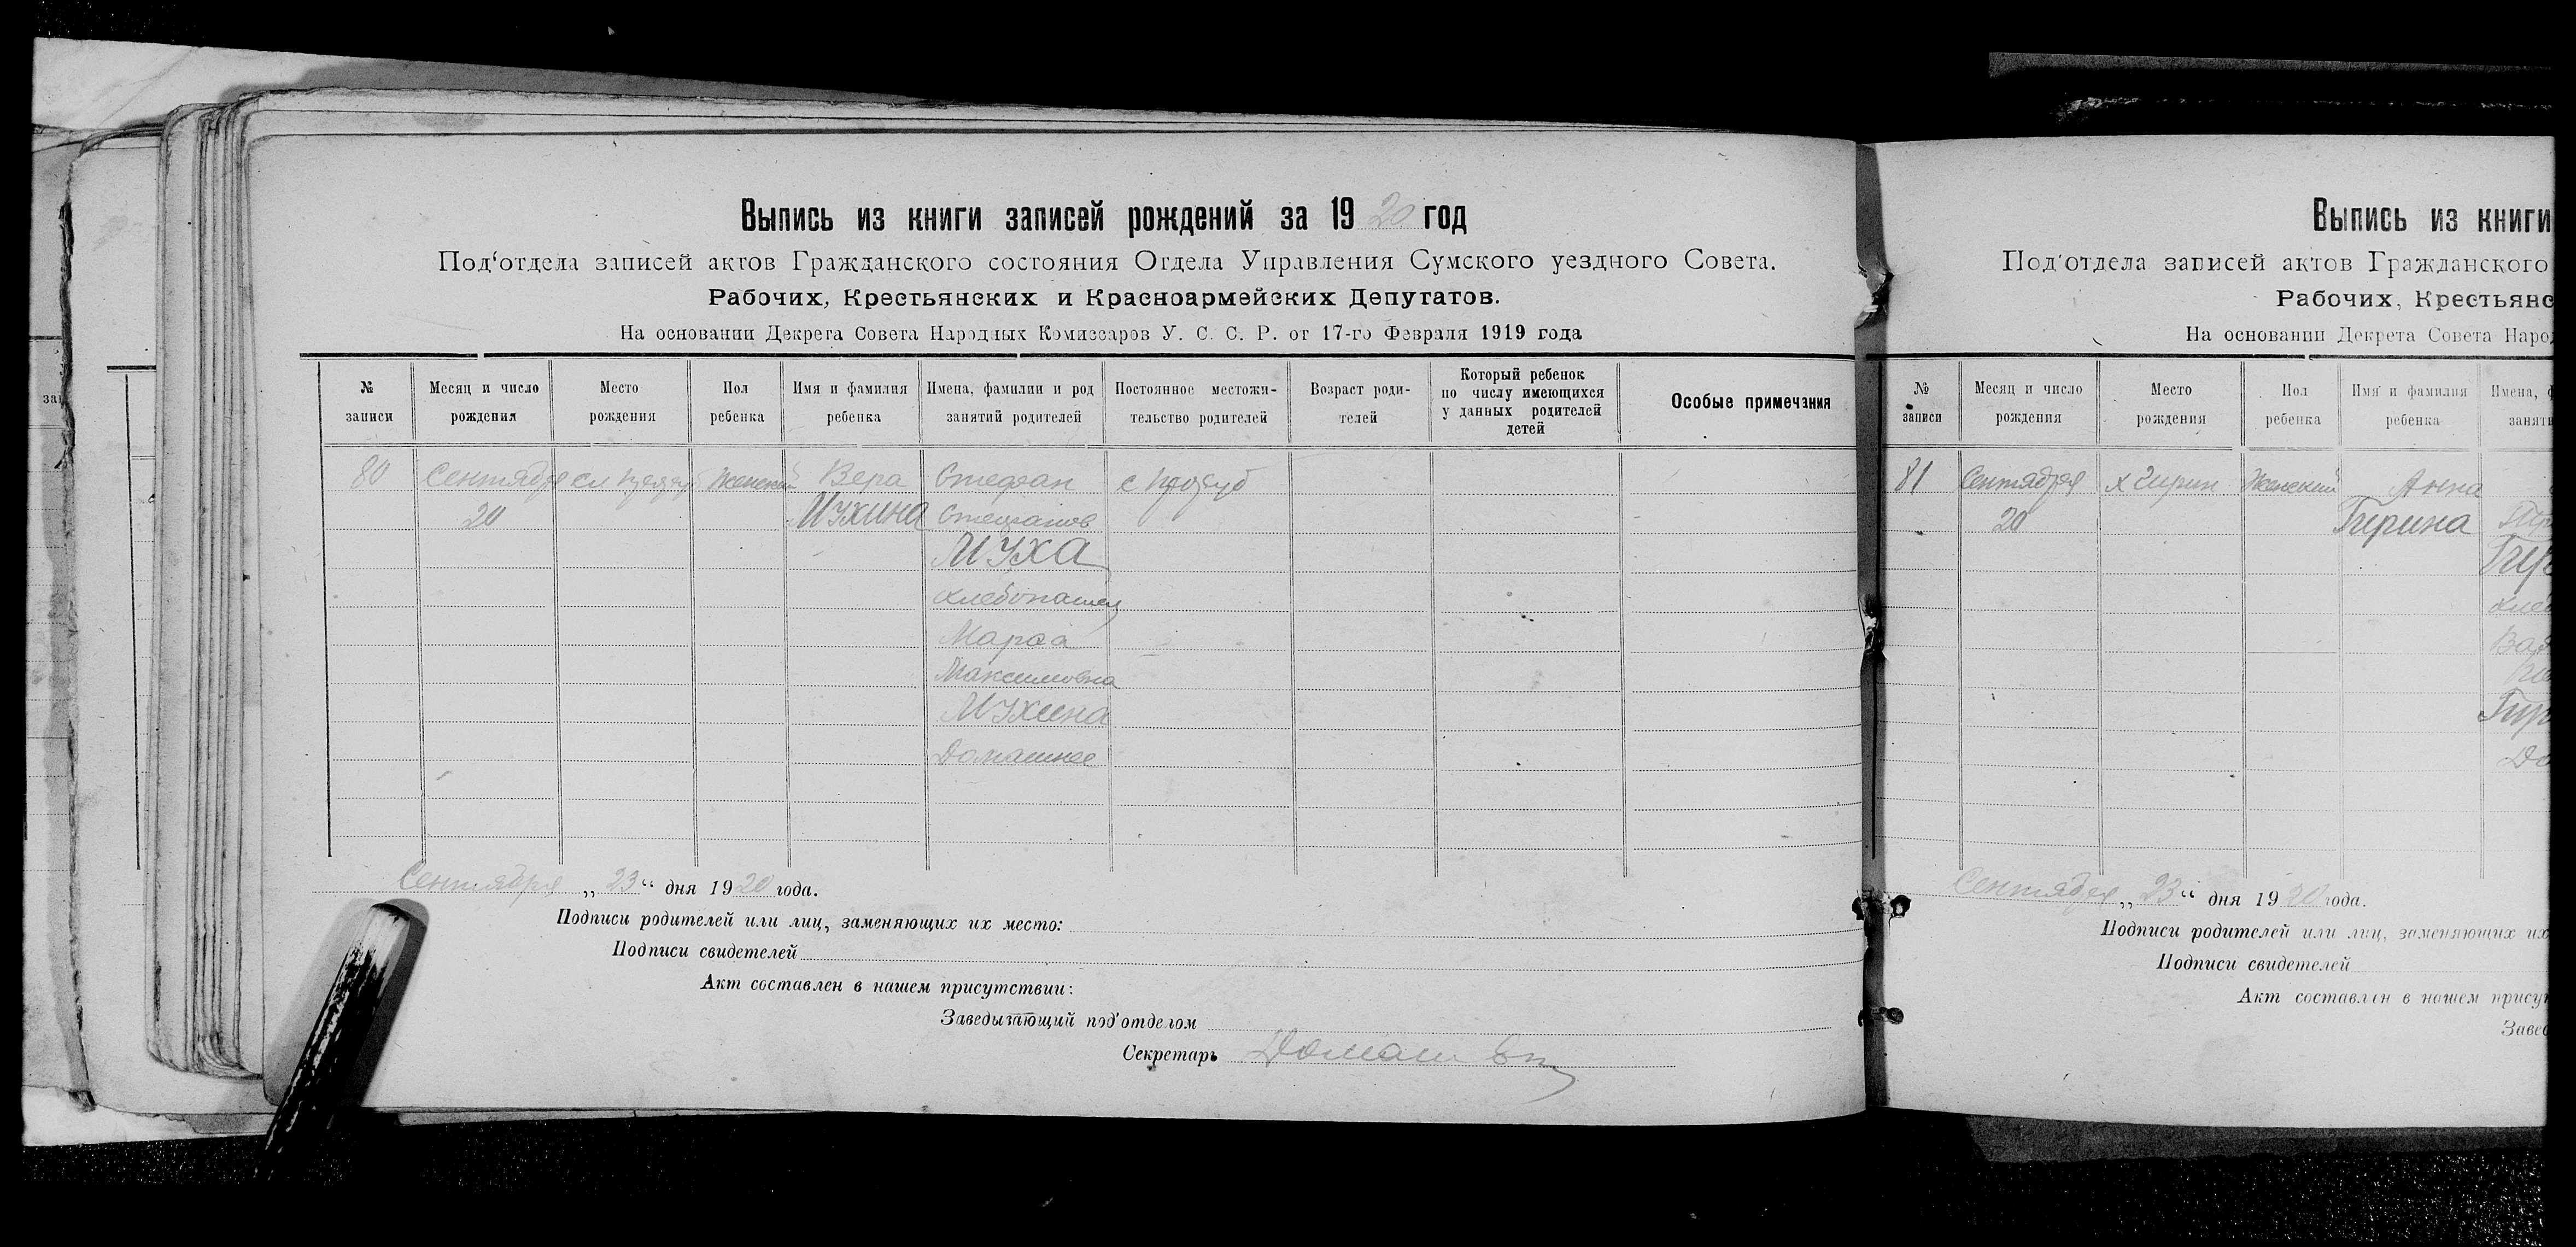 Выпись из книги записей рождений за 1920 год
Под‘отдела записей актов Гражданского состояния Отдела Управления Сумского уездного Совета.
Рабочих, Крестьянских и Красноармейских Депутатов.
На основании Декрета Совета Народных Комиссаров У. С. С. Р. от 17-го Февраля 1919 года
№ записи
Месяц и число рождения
Место рождения
Пол ребенка
Имя и фамилия ребенка
Имена, фамилии и род занятий родителей
Постоянное местожи-тельство родителей
Возраст роди-телей
Который ребенок по числу имеющихся у данных родителей детей
Особые примечания
80 Сентября сл Женский Вера Стефан с
20 Мухина Стефанов
Муха
хлебопашец
Марфа
Максимовна
Мухина
Домашнее
Сентября „23“ дня 1920 года.
Подписи родителей или лиц, заменяющих их место:
Подписи свидетелей
Акт составлен в нашем присутствии:
Заведывающий под‘отделом
Секретарь
Выпись из книги
Под‘отдела записей актов Гражданского
Рабочих, Крестьянс
На основании Декрета Совета Народ
№ записи
Месяц и число рождения
Место рождения
Пол ребенка
Имя и фамилия ребенка
Имена,
заняти
81 Сентября х Женский Анна
20 Гирина
Сентября „23“ дня 1920 года.
Подписи родителей или лиц, заменяющих их
Подписи свидетелей
Акт составлен в нашем присут
Завед